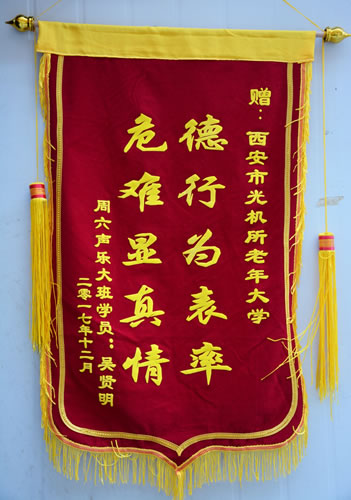 赠：西安市光机所老年大学
德行为表率
危难显真情
周六声乐大班学员：吴贤明
二零一七年十二月